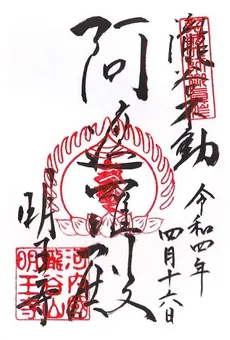 瀧谷不動
令和四年
四月十六日
阿遮羅殿
明王寺
河内國
瀧谷山
明王寺